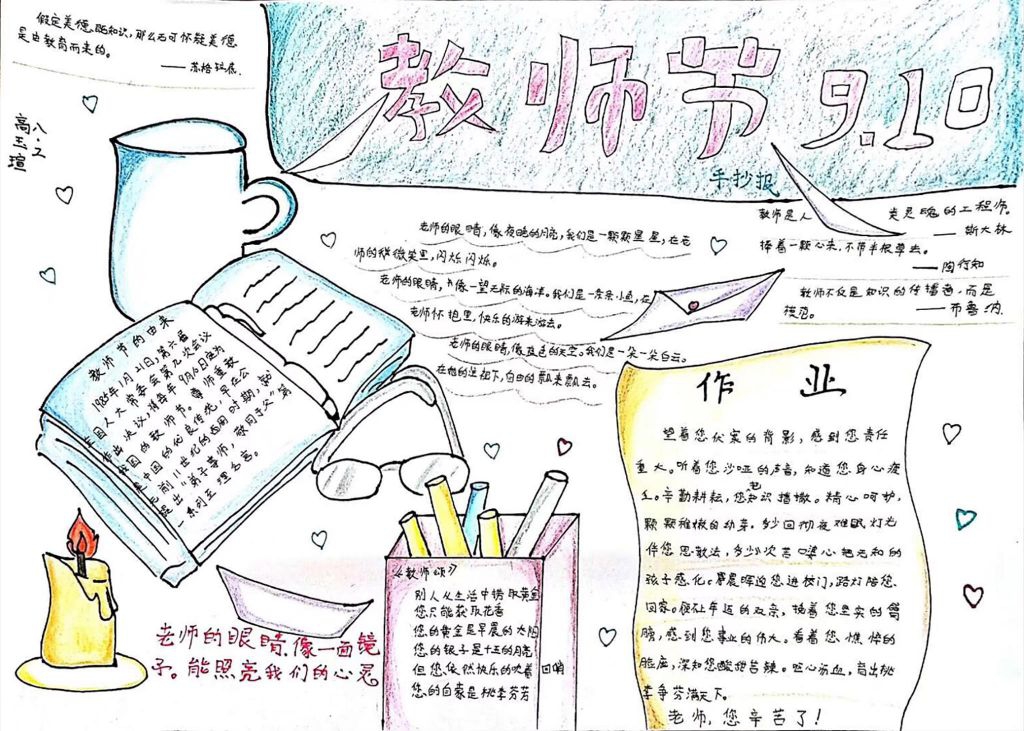 假定美德既知识，那么无可怀疑美德
是由教育而来的。
——苏格拉底
八.2
高玉瑄
教师节 9.10
手抄报
教师是人类灵魂的工程师。
——斯大林
捧着一颗心来，不带半根草去。
——陶行知
教师不仅是知识的传播者，而是
模范。
——布鲁纳
老师的眼睛，像夜晚的月亮，我们是一颗颗星星，在老
师的微笑里，闪烁闪烁。
老师的眼睛，像一望无际的海洋。我们是一条条小鱼，在
老师怀抱里，快乐的游来游去。
老师的眼睛，像蓝色的天空。我们是一朵一朵白云。
在她的注视下，自由的飘来飘去。
教师节的由来
1985年1月21日，第六届
人大常委会第九次会议
作出决议，将每年9月10日定为
我国的教师节。尊师重教
是中国的优良传统，早在公
元前11世纪的西周时期，就
提出"弟子事师，敬同于父"第
一系列至理名言。
作业
望着您伏案的背影，感到您责任
重大。听着您沙哑的声音，知道您身心疲
惫。辛勤耕耘，您把知识播撒。精心呵护，
颗颗稚嫩的幼芽。多少回彻夜难眠，灯光
伴您思教法，多少次苦口婆心把无知的
孩子感化。晨晖迎您进校门，路灯陪您
回家。
感到您事业的伟大。看着您憔悴的
脸庞，深知您酸甜苦辣。呕心沥血，育出桃
李争芬满天下。
老师，您辛苦了！
《教师颂》
别人从生活中捞取黄金
您只能获取花香
您的黄金是早晨的太阳
您的银子是十五的月亮
但您依然快乐的吹着口哨
您的自豪是桃李芬芳
老师的眼睛像一面镜
子。能照亮我们的心灵